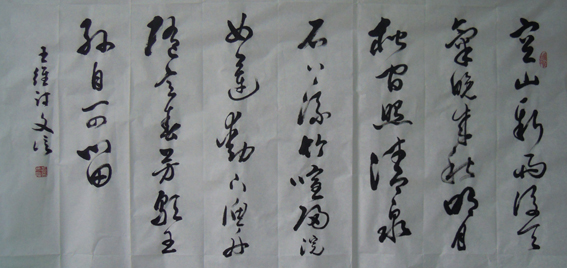 空山新雨後天
氣晚来秋明月
松间照清泉
石上流竹喧归浣
女蓮動下渔舟
随意春芳歇王
孙自可留
王维诗 文